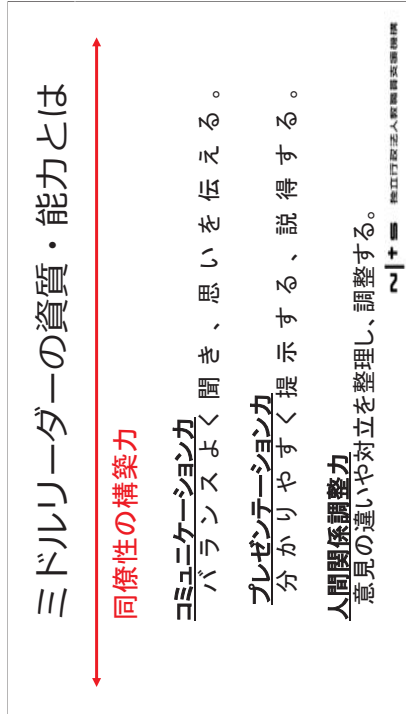 ミドルリーダーの資質・能力とは
同僚性の構築力
コミュニケーション力
バランスよく聞き、思いを伝える。
プレゼンテーション力
分かりやすく提示する、説得する。
人間関係調整力
意見の違いや対立を整理し、調整する。
NITS 独立行政法人教職員支援機構